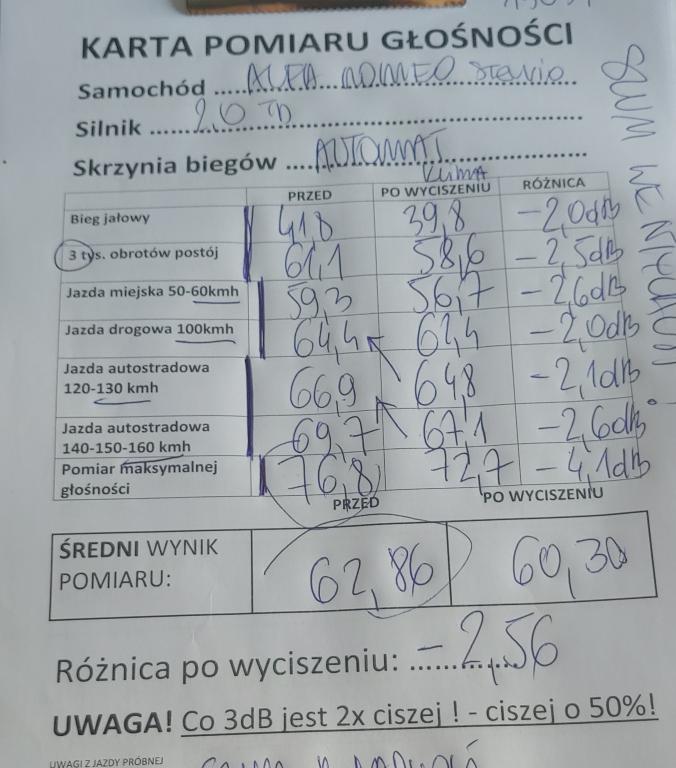 KARTA POMIARU GŁOŚNOŚCI
Samochód ..... ALFA ROMEO Stelvio
Silnik ..... 2,0 TD
Skrzynia biegów .... AUTOMAT
KLIMA
PRZED PO WYCISZENIU RÓŻNICA
Bieg jałowy 41,8 39,8 -2,0dB
3 tys. obrotów postój 61,1 58,6 -2,5dB
Jazda miejska 50-60kmh 59,3 56,7 -2,6dB
Jazda drogowa 100kmh 64,4 62,4 -2,0dB
Jazda autostradowa
120-130 kmh 66,9 64,8 -2,1dB
Jazda autostradowa
140-150-160 kmh 69,7 67,1 -2,6dB
Pomiar maksymalnej
głośności 76,8 72,7 -4,1dB
PRZED PO WYCISZENIU
ŚREDNI WYNIK
POMIARU: 62,86 60,30
Różnica po wyciszeniu: -2,56
UWAGA! Co 3dB jest 2x ciszej ! - ciszej o 50%!
UWAGI Z JAZDY PRÓBNEJ